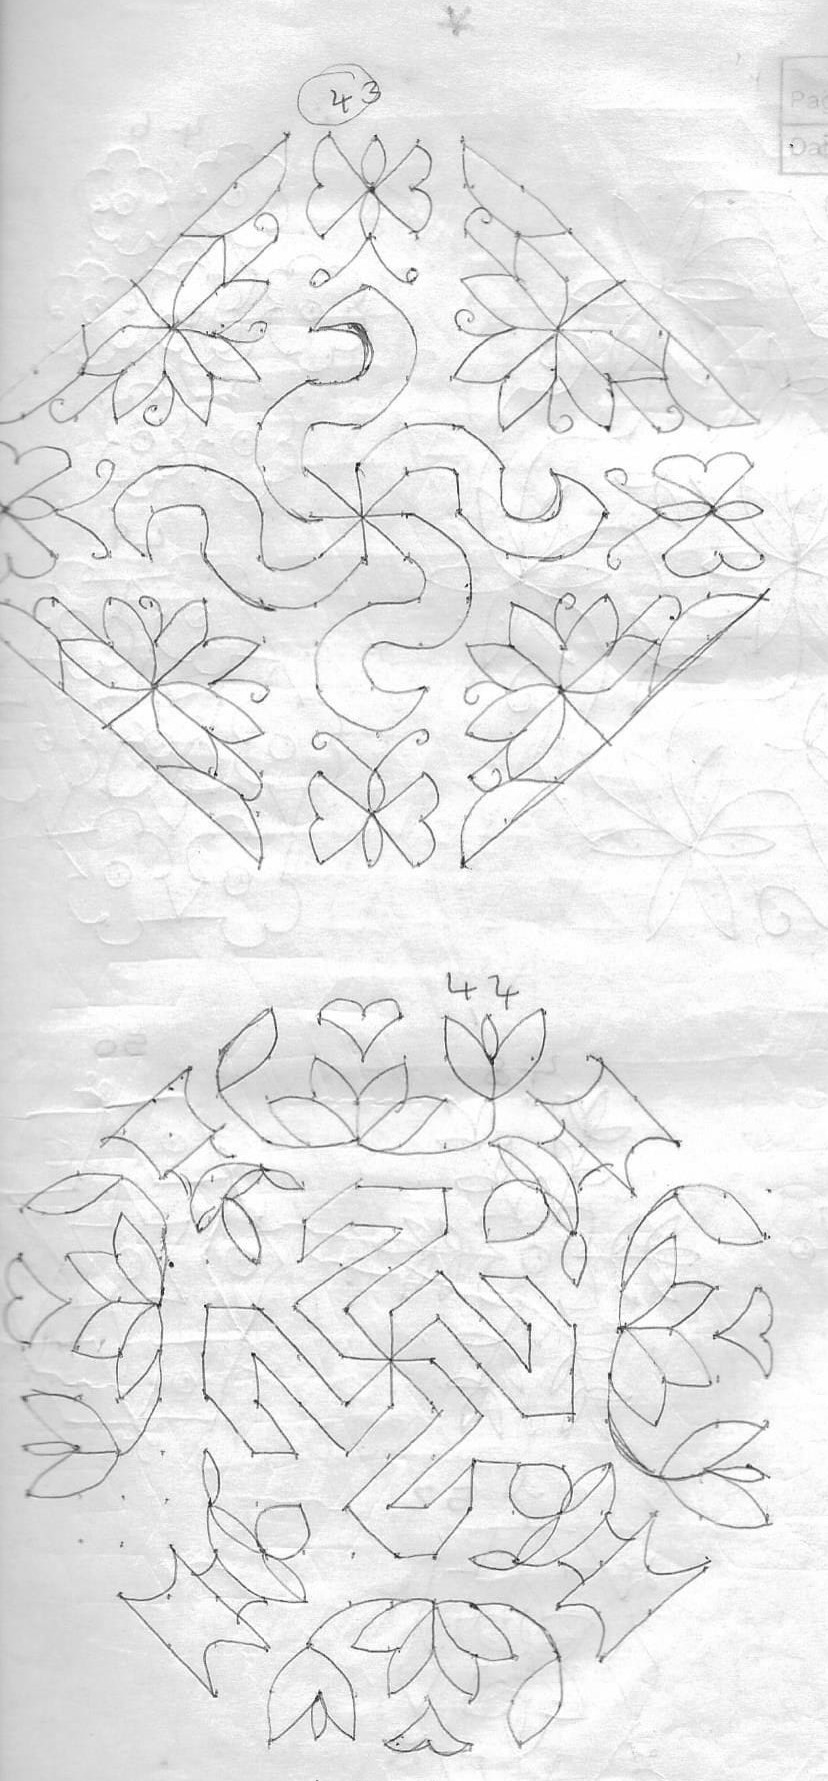 43
Pa
Da
44
50